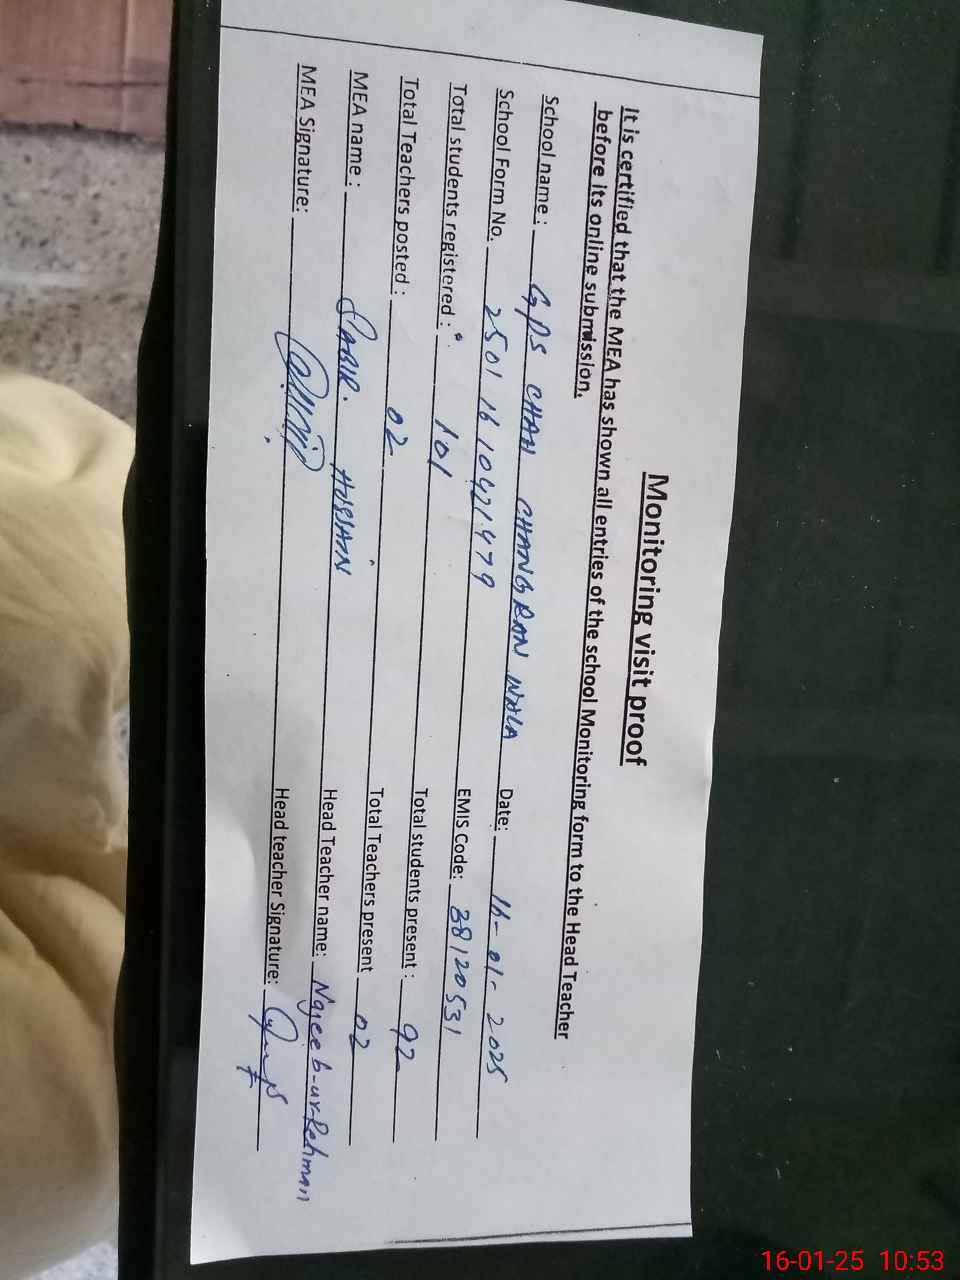 Monitoring visit proof
It is certified that the MEA has shown all entries of the school Monitoring form to the Head Teacher
before its online submission.
School name : GPS CHAH CHANGRAN WALA Date: 16-01-2025
School Form No. 25011610421479 EMIS Code: 38120531
Total students registered : 101 Total students present : 92
Total Teachers posted : 02 Total Teachers present 02
MEA name : SABIR HUSSAIN Head Teacher name: Najeeb-ur-Rehman
MEA Signature: Head teacher Signature:
16-01-25 10:53